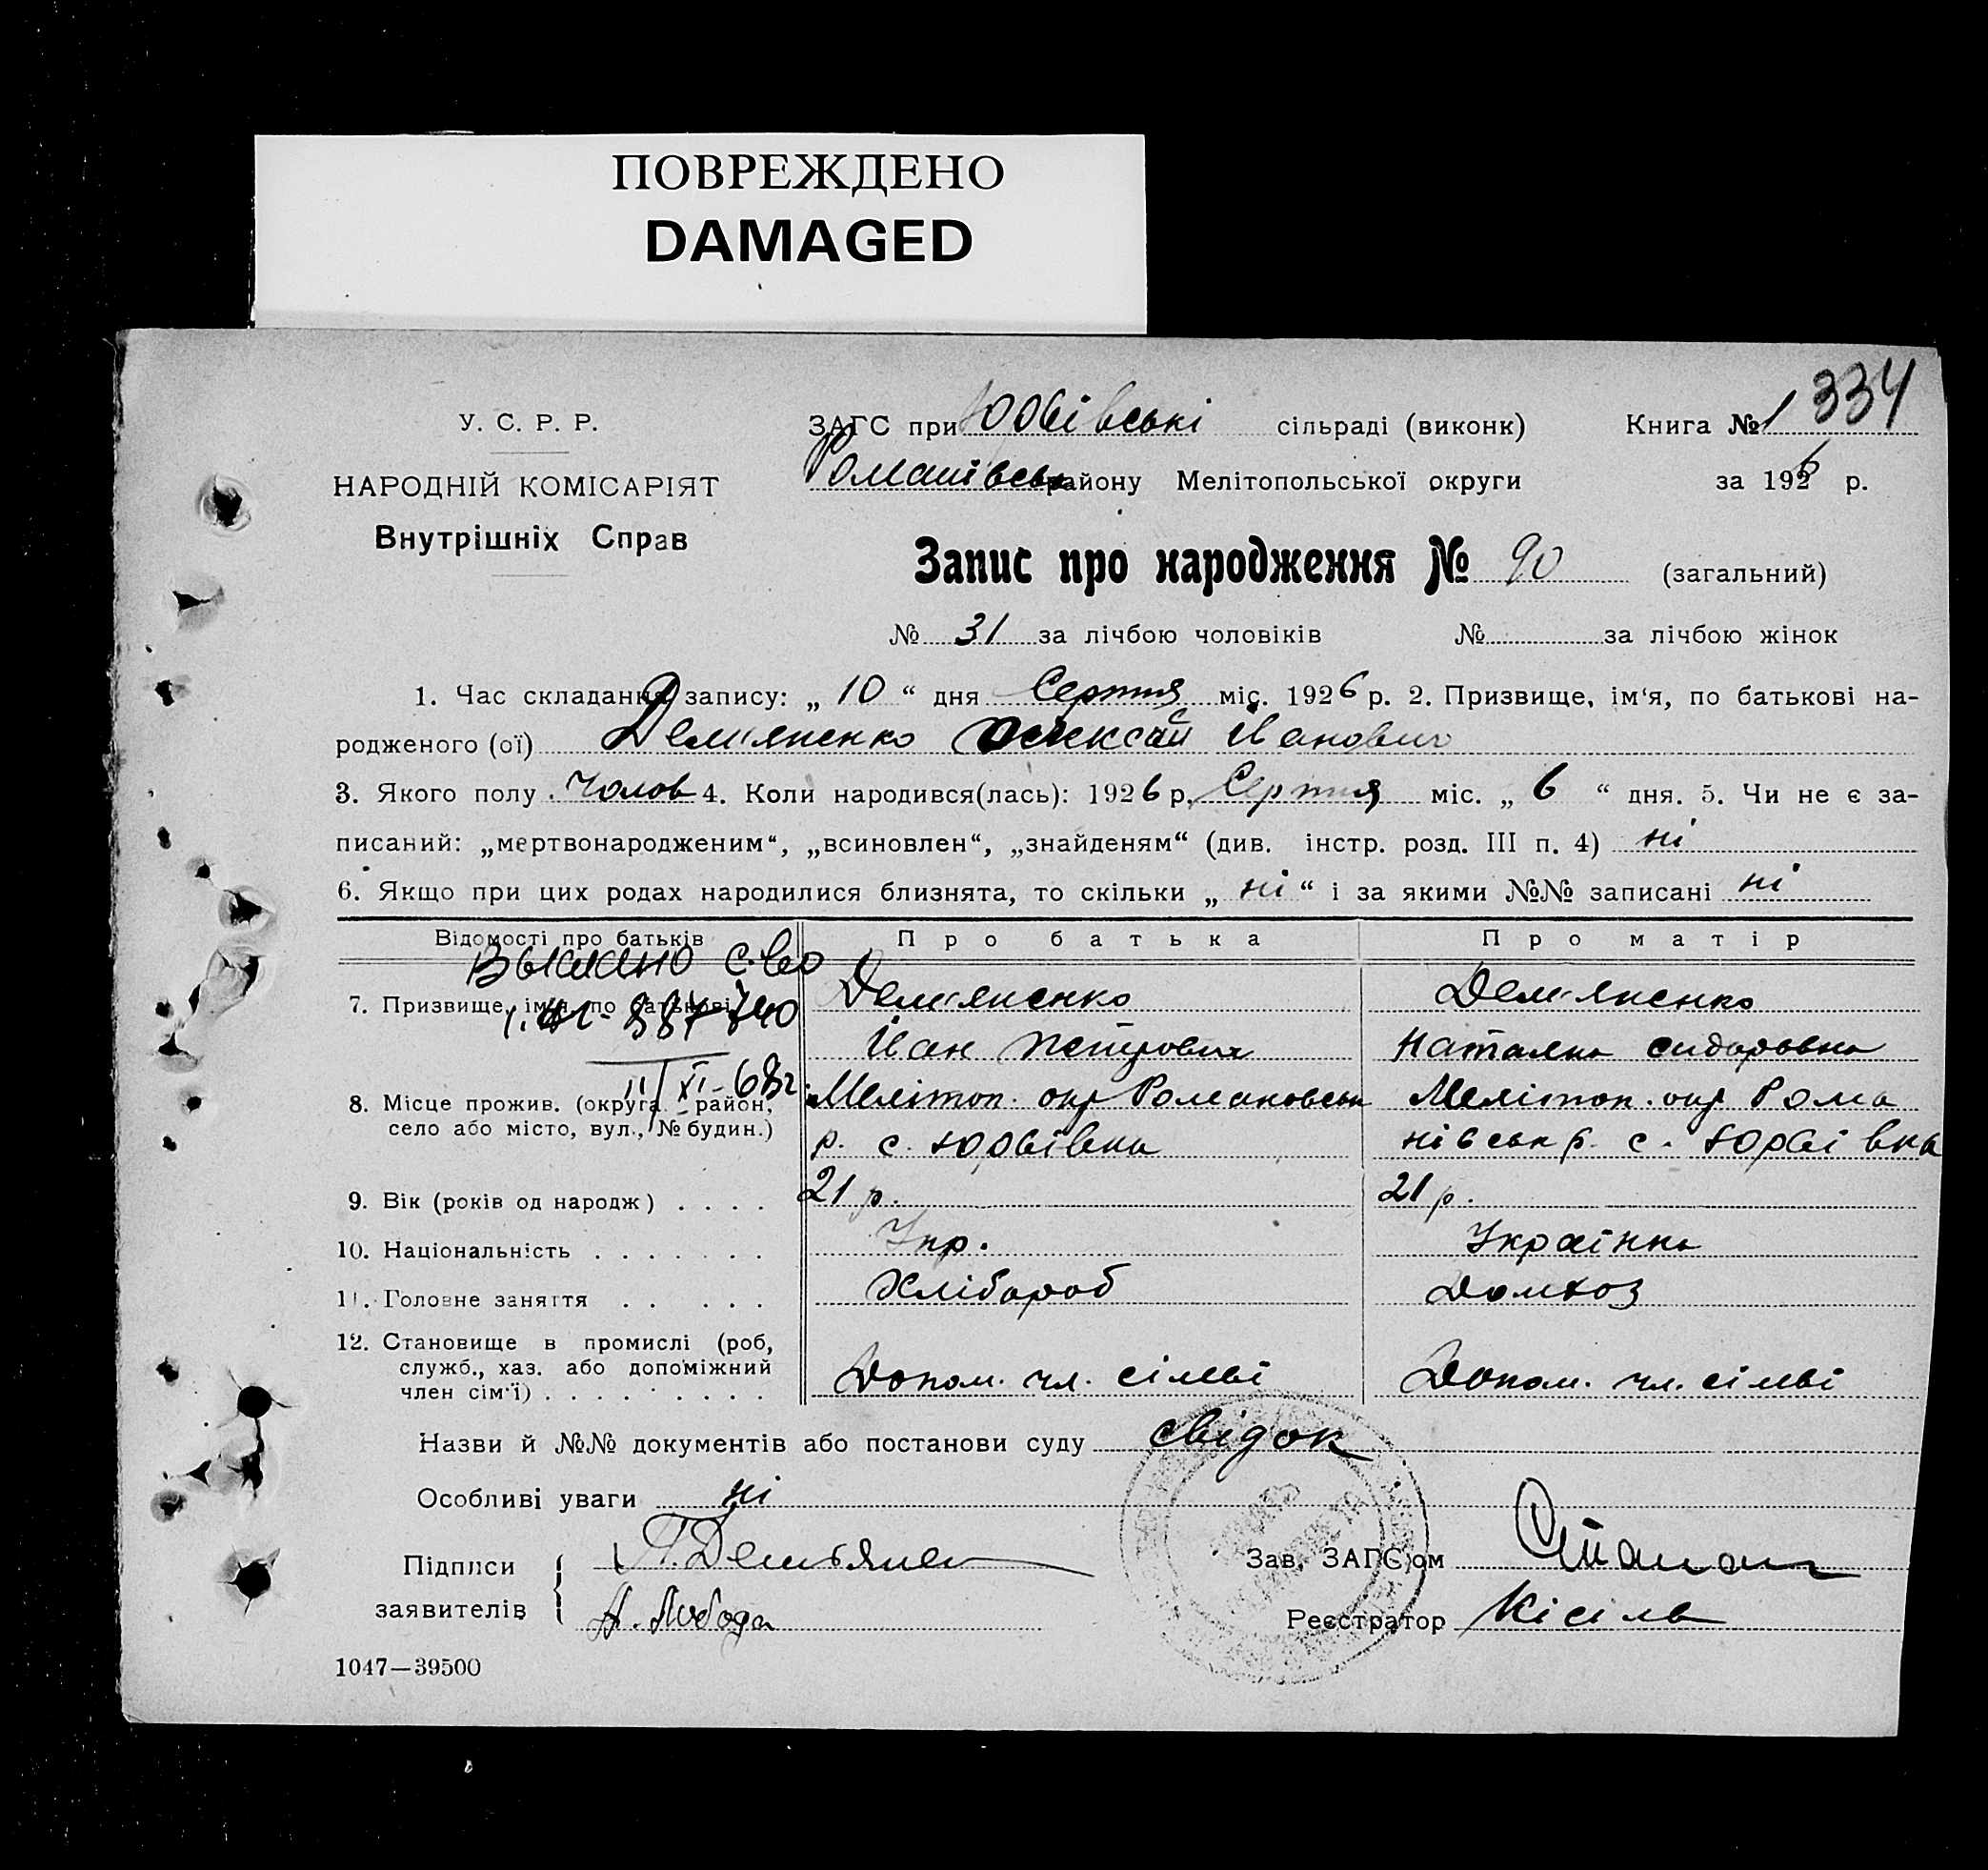 ПОВРЕЖДЕНО
DAMAGED
334
У. С. Р. Р. ЗАГС при сільраді (виконк) Книга № 1
Романівськ району Мелітопольської округи за 1926 р.
НАРОДНІЙ КОМІСАРІЯТ
Внутрішніх Справ
Запис про народження № 90 (загальний)
№ 31 за лічбою чоловіків № за лічбою жінок
1. Час складання запису: „ 10 “ дня Серпня міс. 1926 р. 2. Призвище, ім‘я, по батькові на-
родженого (ої) Дем'яненко Олексій Іванович
3. Якого полу Чолов 4. Коли народився(лась): 1926 р. Серпня міс. „ 6 “ дня. 5. Чи не є за-
писаний: „мертвонародженим“, „всиновлен“, „знайденям“ (див. інстр. розд. III п. 4) ні
6. Якщо при цих родах народилися близнята, то скільки „ ні “ і за якими №№ записані ні
Відомості про батьків Про батька Про матір
Выдано с-во
7. Призвище, імя, по батькові Дем'яненко Дем'яненко
Іван Петрович Наталка Сидоровна
11/XI-68г.
8. Місце прожив. (округа район, Мелітоп. окр Романовськ Мелітоп. окр Рома
село або місто, вул., № будин.) р. с. Юр'ївка нівськ р. с. Юр'ївка
9. Вік (років од народж) . . . . 21 р. 21 р.
10. Національність . . . . . . . Укр. Українка
11. Головне заняття . . . . . Хлібороб Домхоз
12. Становище в промислі (роб,
служб., хаз. або допоміжний
член сім'ї) . . . . . . . . . Допом. чл. сімьі Допом. чл. сімьі
Назви й №№ документів або постанови суду свідок
Особливі уваги ні
Підписи П. Демьянен Зав. ЗАГС'ом
заявителів А. Лобода Реєстратор Кісіль
1047—39500